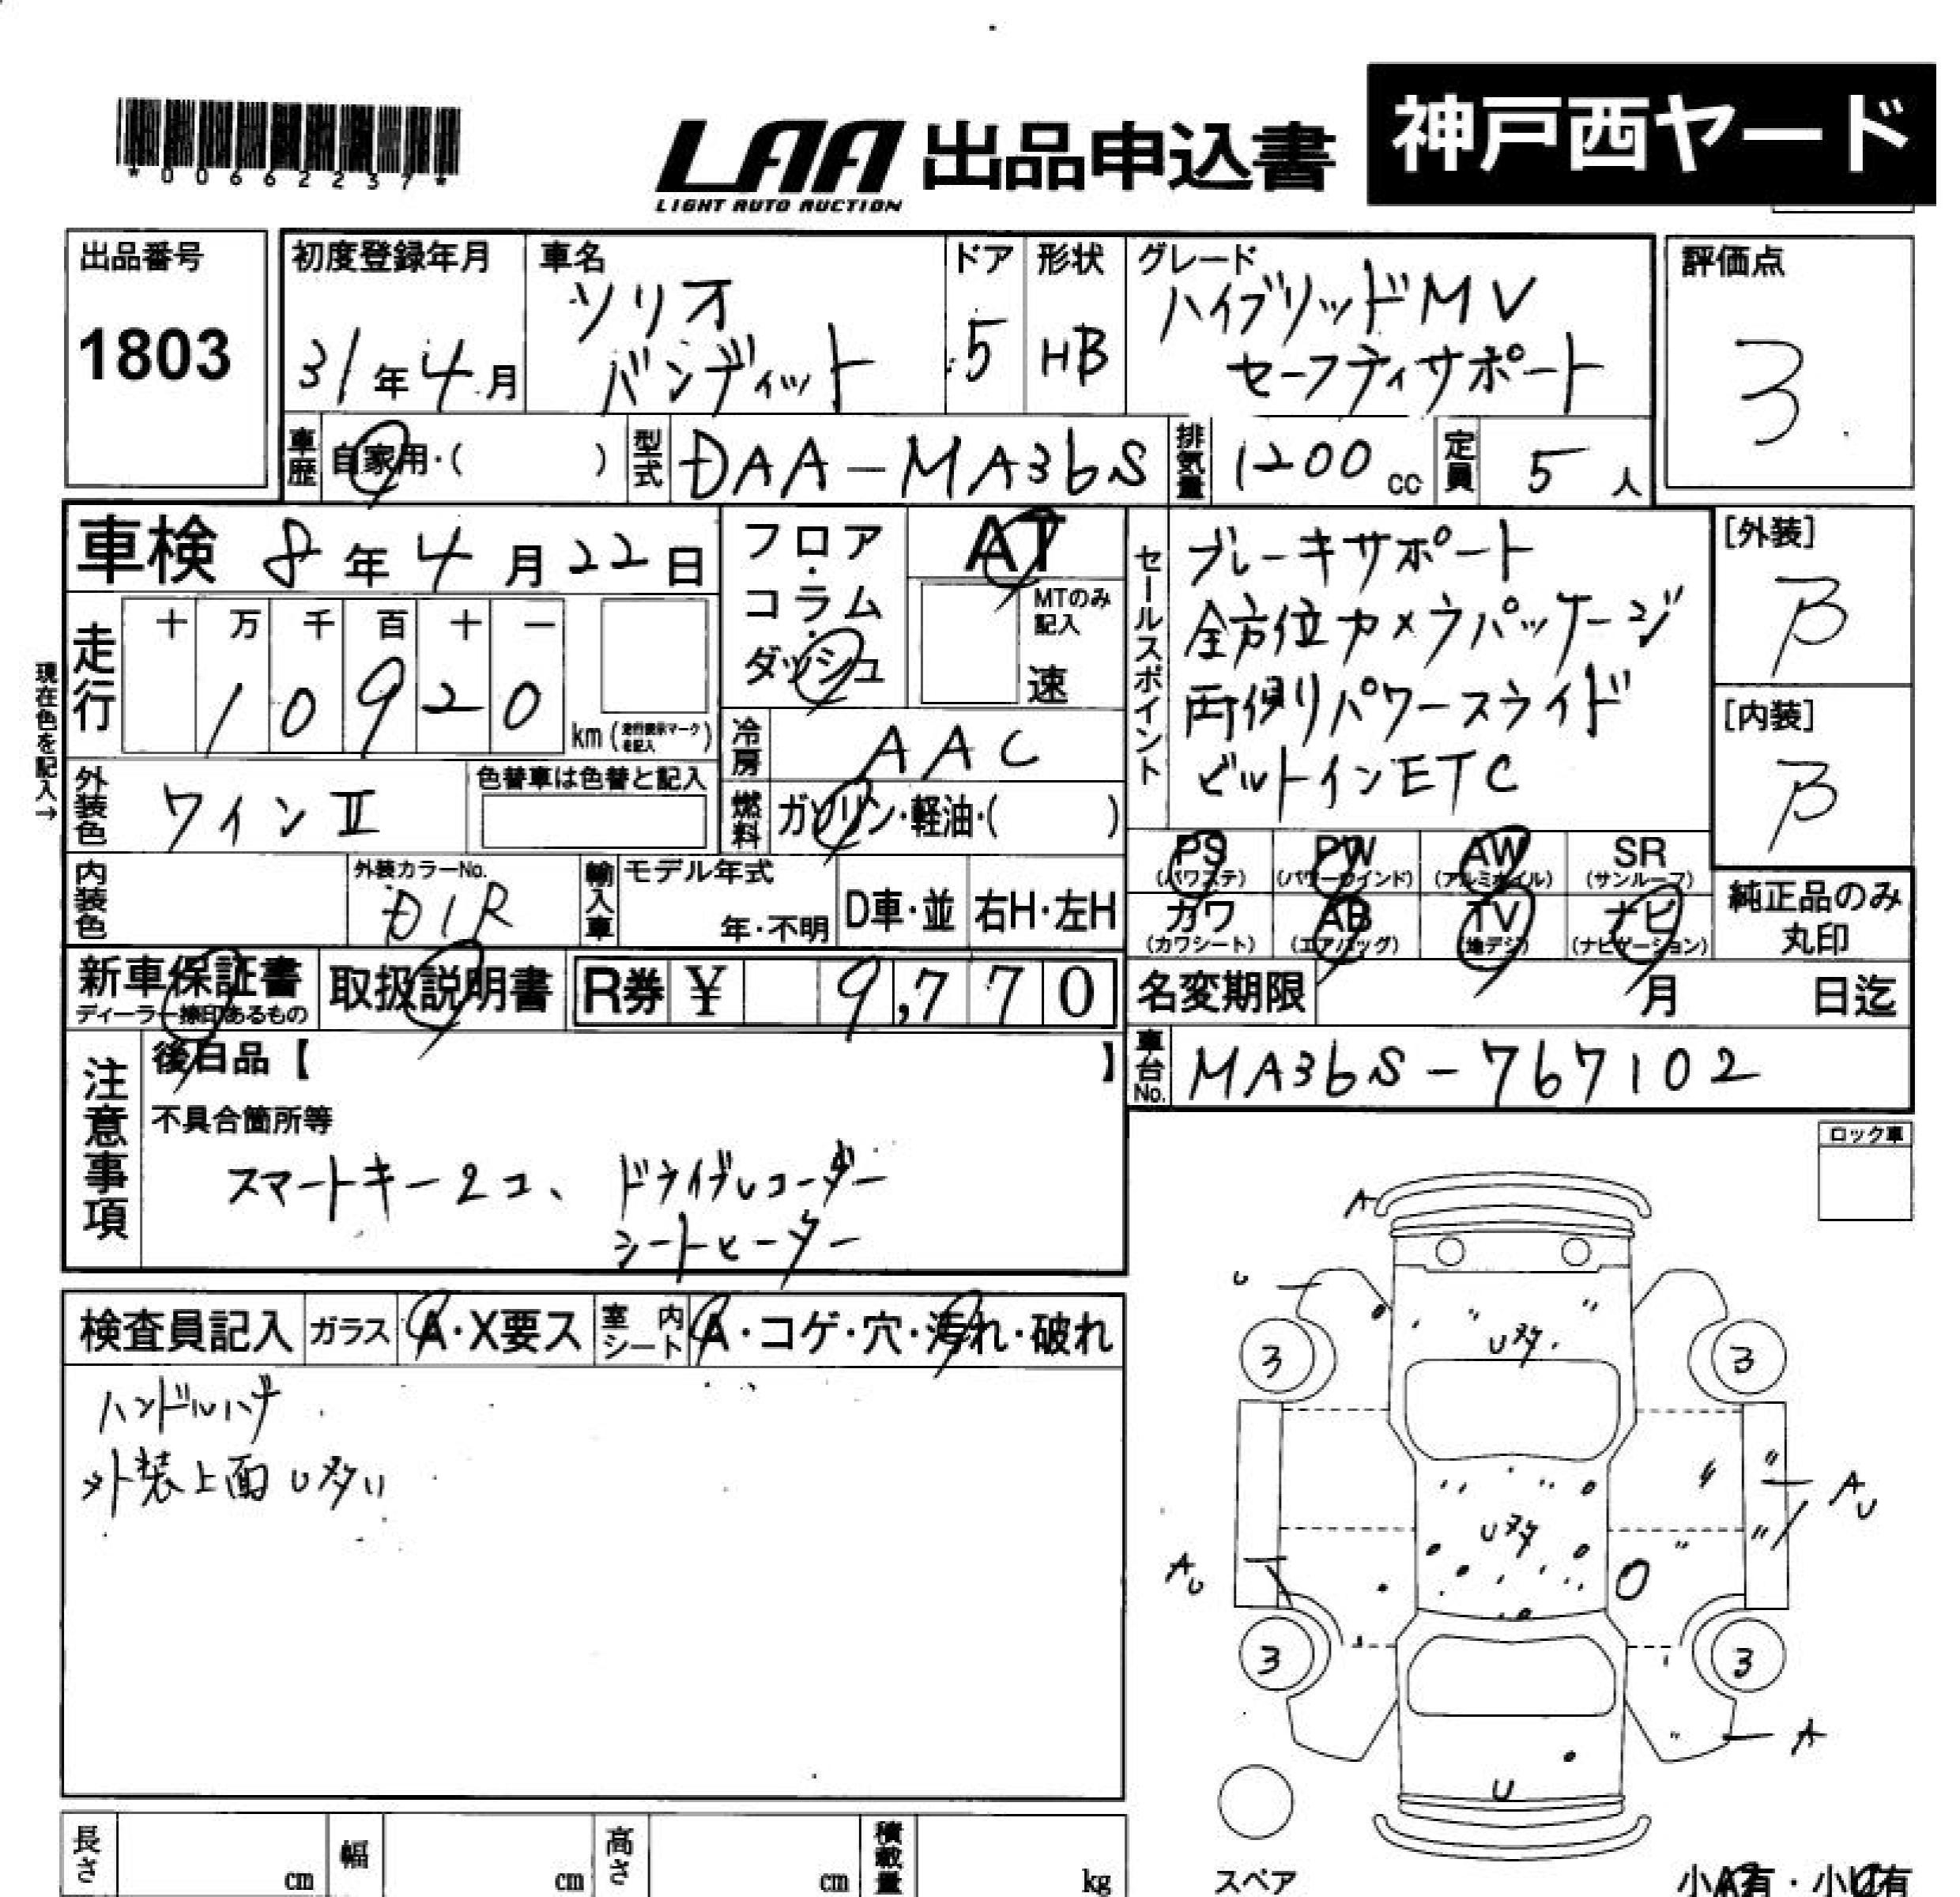 *00662237*
LAA 出品申込書 神戸西ヤード
LIGHT AUTO AUCTION
出品番号
1803
初度登録年月
31年4月
車名
ソリオ
バンディット
ドア
5
形状
HB
グレード
ハイブリッドMV
セーフティサポート
評価点
3
車歴 自家用・( )
型式 DAA-MA36S
排気量 1200cc
定員 5人
車検 8年4月22日
フロア・コラム・ダッシュ
AT
MTのみ記入
速
セールスポイント
ブレーキサポート
全方位カメラパッケージ
両側パワースライド
ビルトインETC
[外装]
B
[内装]
B
現在色を記入→
走行 十 万 千 百 十 一
10920
km(走行表示マークを記入)
冷房 AAC
外装色 ワインⅡ
色替車は色替と記入
燃料 ガソリン・軽油・( )
内装色
外装カラーNo.
D1R
輸入車 モデル年式
年・不明
D車・並 右H・左H
PS (パワステ)
PW (パワーウインド)
AW (アルミホイル)
SR (サンルーフ)
カワ (カワシート)
AB (エアバッグ)
TV (地デジ)
ナビ (ナビゲーション)
純正品のみ
丸印
新車保証書
ディーラー捺印あるもの
取扱説明書
R券 ¥ 9,770
名変期限 月 日迄
注意事項
後日品【 】
車台No. MA36S-767102
不具合箇所等
スマートキー2コ、ドライブレコーダー
シートヒーター
ロック車
検査員記入 ガラス A・X要ス 室内シート A・コゲ・穴・汚れ・破れ
ハンドルハゲ
外装上面U多い
A
U
U多
3
3
U多
A U
A U
3
3
A
U
長さ cm 幅 cm 高さ cm 積載量 kg
スペア
小A有・小U有